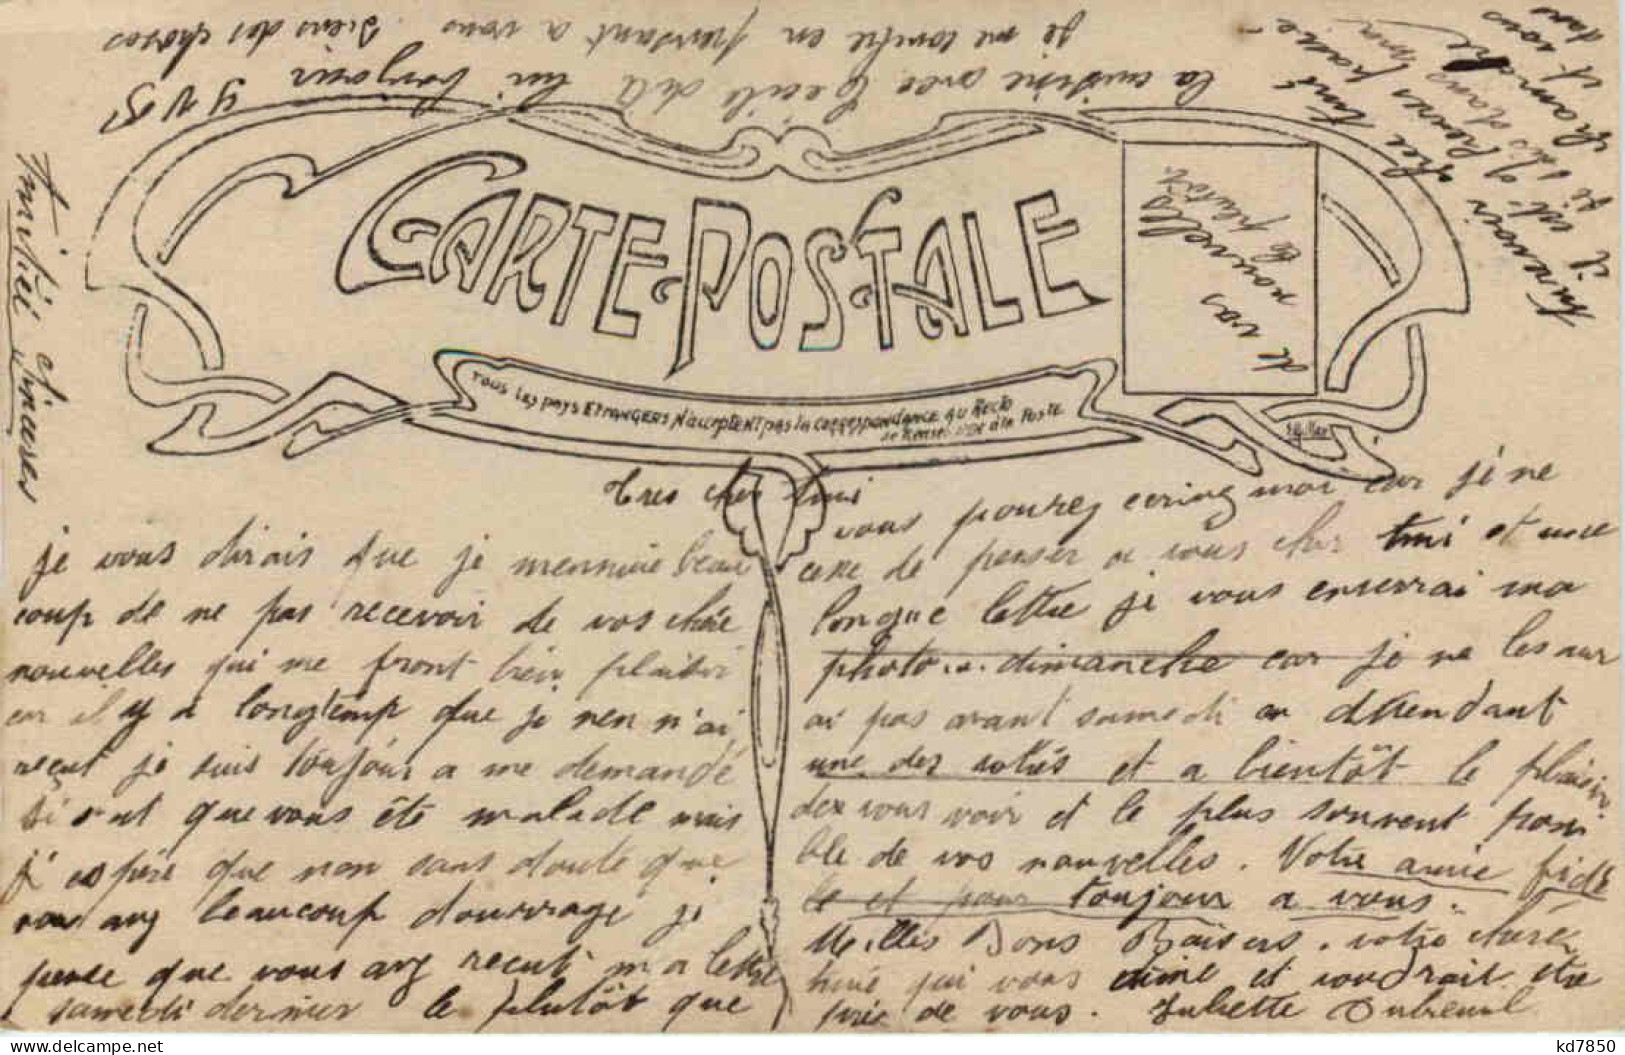 CARTE POSTALE
TOUS LES PAYS ETRANGERS N'ACCEPTENT PAS LA CORRESPONDANCE AU RECTO
à la POSTE
Tres cher Ami
je vous dirais que je mennuie beau
coup de ne pas recevoir de vos chére
nouvelles qui me front bien plaisir
car il y a longtemp que je nen n'ai
reçut je suis toujour a me demandé
si vous été malade mais
j'espére que non sans doute que
vous avez beaucoup douvrage je
pense que vous avez recut ma lettre
samedi dernier le plutôt que
vous pourez ecrivez moi car je ne
cesse de penser a vous cher Ami et une
longue lettre je vous enverrai ma
photo dimanche car je ne les aur
ai pas avant samedi en attendant
une des votres et a bientôt le plaisir
de vous voir et le plus souvent possi
ble de vos nouvelles. Votre amie fidè
le et pour toujour a vous.
Milles Bons Baisers. votre chére
Amie qui vous aime et voudrait etre
pres de vous. Juliette Dubreuil
Amitiée sincéres
de vos
nouvelles
le plutôt
Aurevoir cher Ami
il est heures passé
je
dimanche
et vous
dans
la cuisine avec Cécile dela lui bonjour
je me confie en pensant a vous. Biens des choses